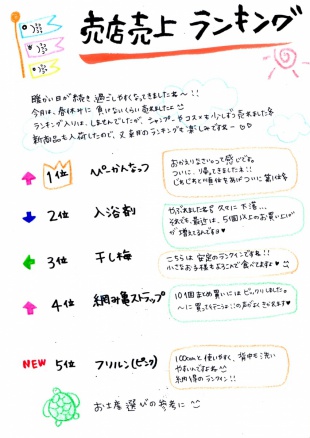 売店売上ランキング
暖かい日が続き過ごしやすくなってきましたね〜!!
今月は、春休みに負けないくらい売れましたよ
ランクインは、しませんでしたが、シャンプーやコスメも少しずつ売れました
新商品も入荷したので、又来月のランキングも楽しみですね〜
1位 ぺーかんなっつ
おかえりなさいって感じです。
ついに、帰ってきましたネ!!
じわじわと順位をあげついに第1位
2位 入浴剤
やぶれましたね 久々に下落…
それでも、最近は、5個以上のお買い上げ
が増えてるんですヨ♥
3位 干し梅
こちらは安定のランクインですね!!
小さなお子様もよろこんで食べてますよ♥
4位 網み亀ストラップ
10個まとめ買いにはビックリしました。
〜に買って行こう♪の声がよくきかれます♥
NEW 5位 フリルン(ピンク)
100cmと使いやすく、背中も洗い
やすいんですよね
納得のランクイン!!
お土産選びの参考に